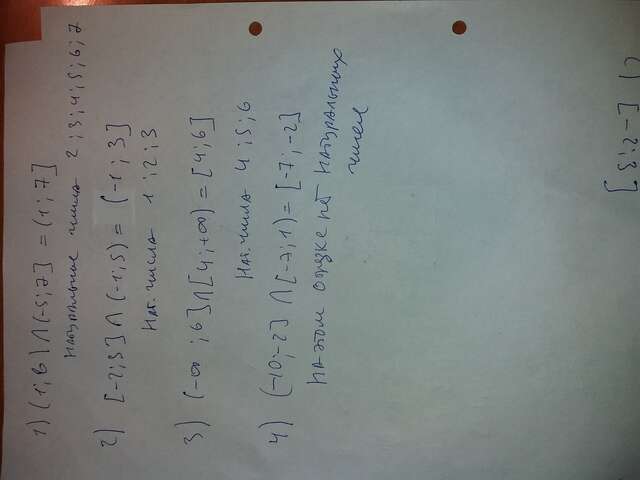 1) (1; 8) ∩ (-5; 7] = (1; 7]
Натуральные числа 2; 3; 4; 5; 6; 7
2) [-2; 3] ∩ (-1; 5) = (-1; 3]
Нат. числа 1; 2; 3
3) (-∞; 6] ∩ [4; +∞) = [4; 6]
Нат. числа 4; 5; 6
4) (-10; -2] ∩ [-7; 1) = [-7; -2]
На этом отрезке нет натуральных
чисел